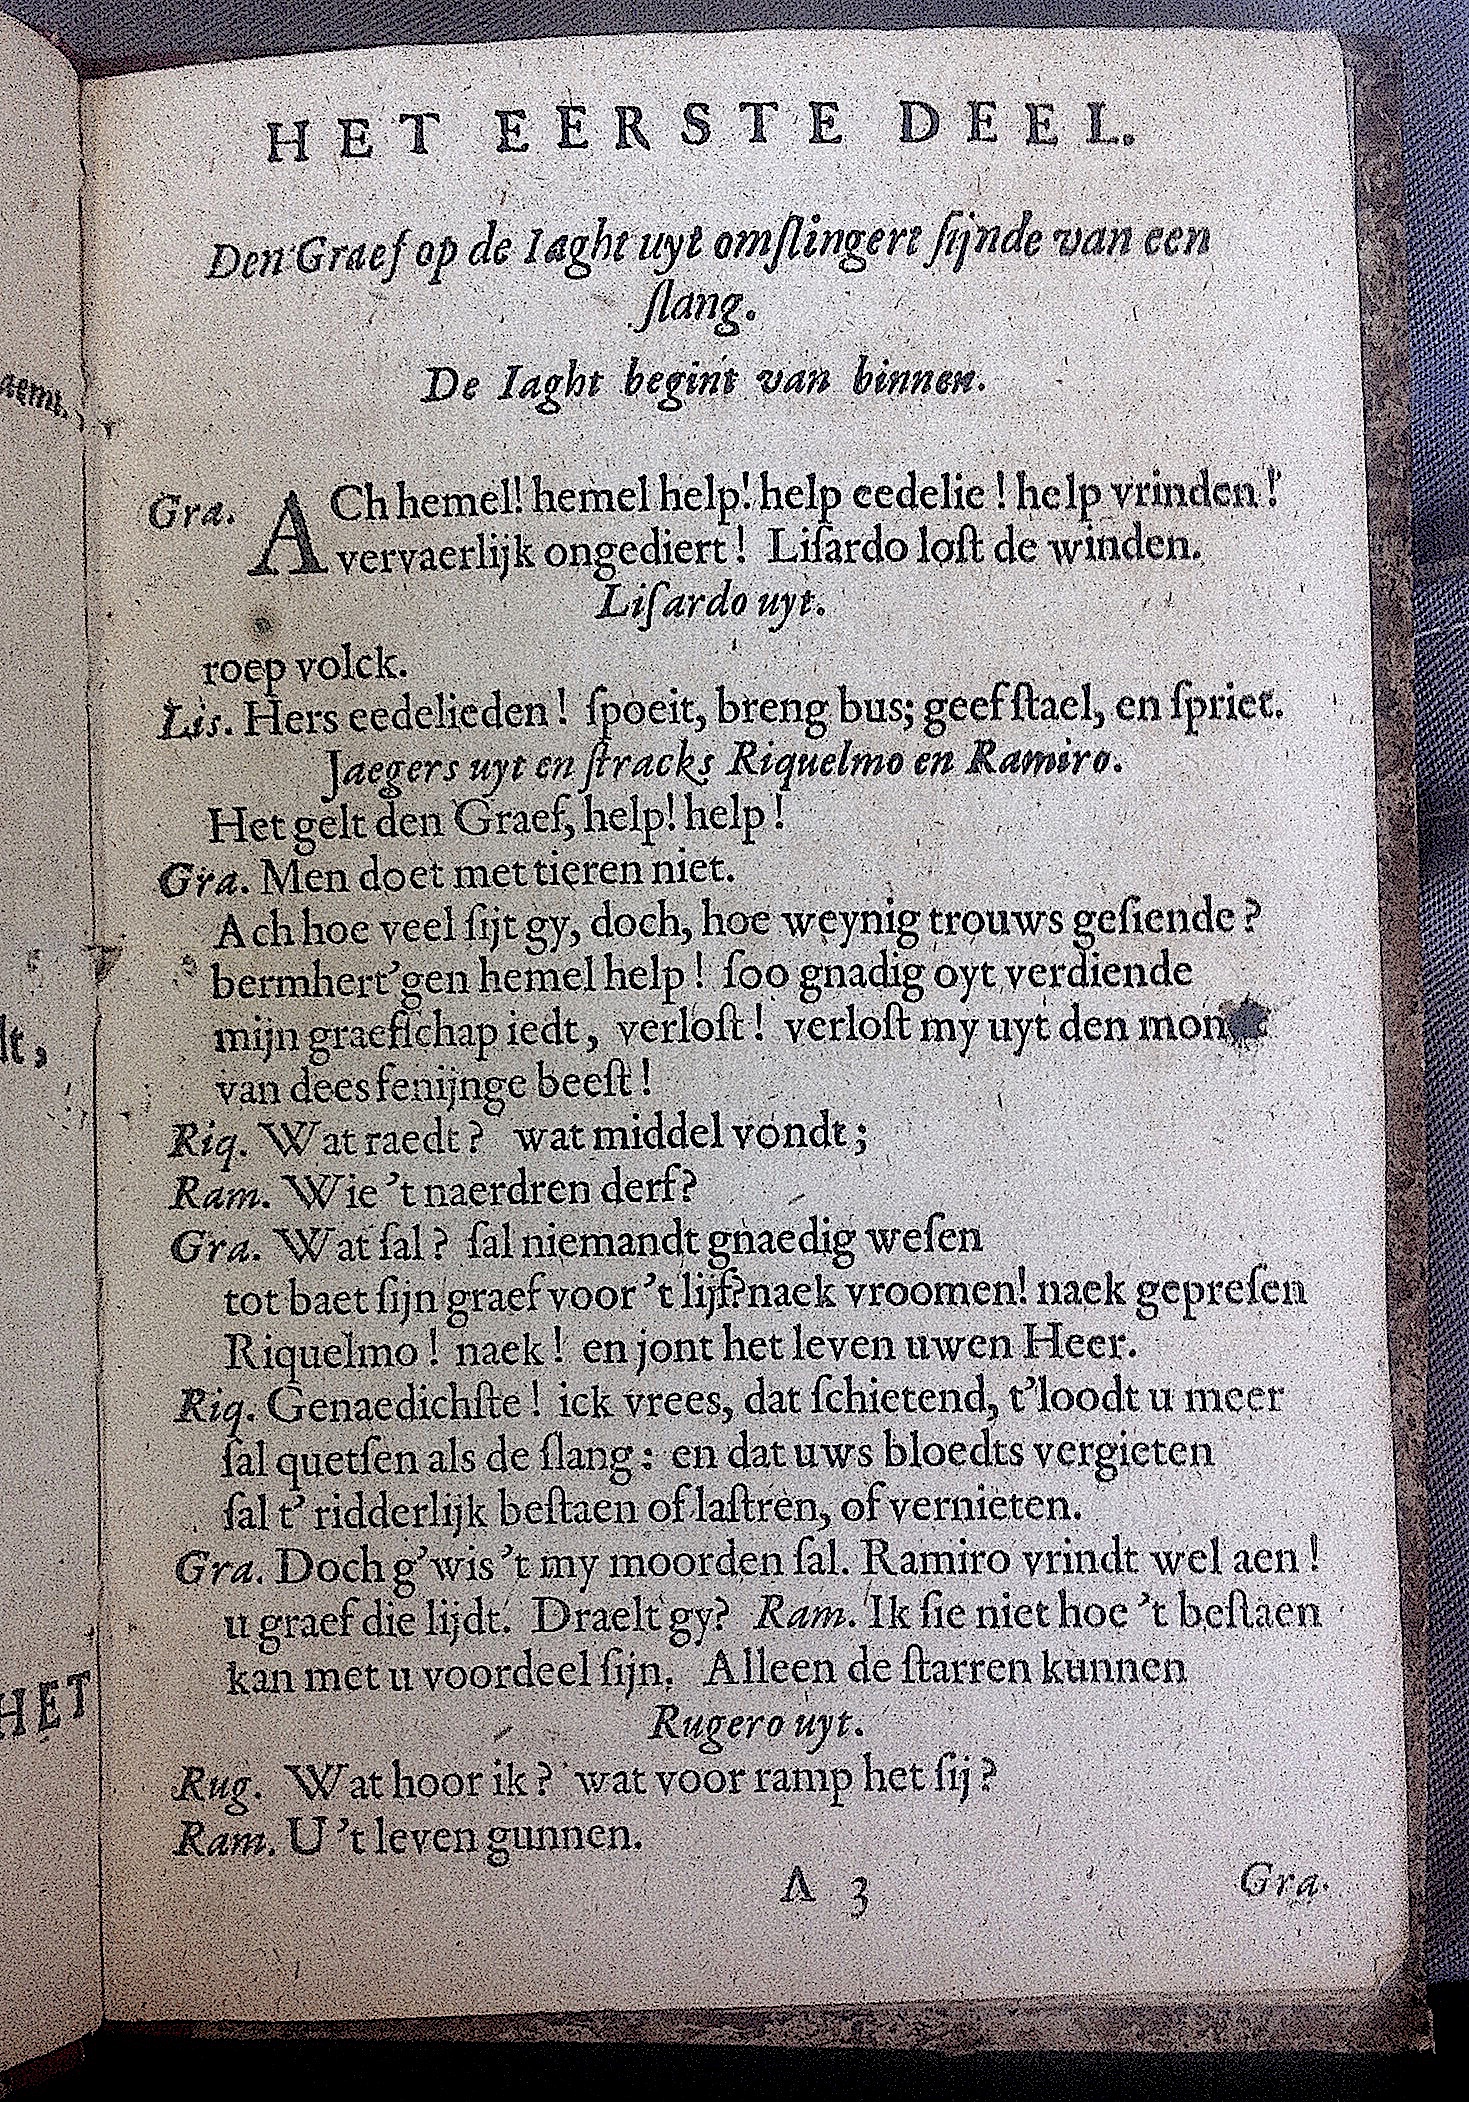 HET EERSTE DEEL.
Den Graef op de Iaght uyt omſlingert ſijnde van een
ſlang.
De Iaght begint van binnen.
Gra. ACh hemel! hemel help! help eedelie! help vrinden!
vervaerlijk ongediert! Liſardo loſt de winden.
Liſardo uyt.
roep volck.
Lis. Hers eedelieden! ſpoeit, breng bus; geef ſtael, en ſpriet.
Jaegers uyt en ſtracks Riquelmo en Ramiro.
Het gelt den Graef, help! help!
Gra. Men doet met tieren niet.
Ach hoe veel ſijt gy, doch, hoe weynig trouws geſiende?
bermhert'gen hemel help! ſoo gnadig oyt verdiende
mijn graefſchap iedt, verloſt! verloſt my uyt den
van dees fenijnge beeſt!
Riq. Wat raedt? wat middel vondt;
Ram. Wie 't naerdren derf?
Gra. Wat ſal? ſal niemandt gnaedig weſen
tot baet ſijn graef voor 't lijf? naek vroomen! naek gepreſen
Riquelmo! naek! en jont het leven uwen Heer.
Riq. Genaedichſte! ick vrees, dat ſchietend, t'loodt u meer
ſal quetſen als de ſlang: en dat uws bloedts vergieten
ſal t' ridderlijk beſtaen of laſtren, of vernieten.
Gra. Doch g'wis 't my moorden ſal. Ramiro vrindt wel aen!
u graef die lijdt. Draelt gy? Ram. Ik ſie niet hoe 't beſtaen
kan met u voordeel ſijn. Alleen de ſtarren kunnen
Rugero uyt.
Rug. Wat hoor ik? wat voor ramp het ſij?
Ram. U 't leven gunnen.
A 3
Gra.
lt,
HET